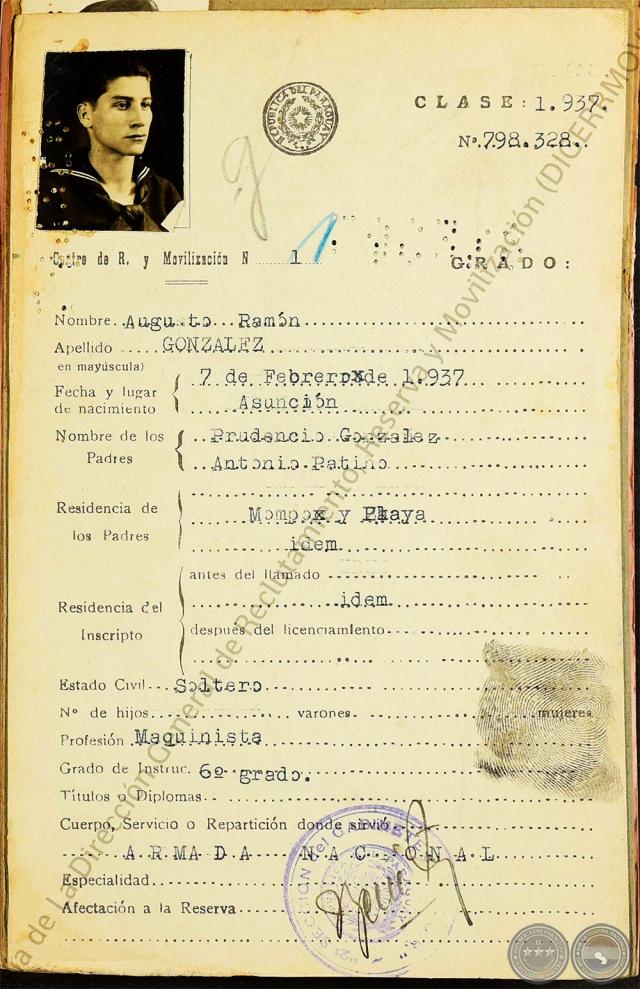 REPUBLICA DEL PARAGUAY
CLASE: 1.937.
Nº 798.328.
Centro de R. y Movilización N 1
GRADO:
Nombre Augusto Ramón
Apellido GONZALEZ
en mayúscula)
7 de Febrero de 1.937
Fecha y lugar
de nacimiento
Asunción
Nombre de los
Padres
Prudencio Gonzalez
Antonio Patiño
Residencia de
los Padres
Mompox y Playa
idem
antes del llamado
idem
Residencia del
Inscripto
después del licenciamiento
Estado Civil Soltero
Nº de hijos varones mujeres
Profesión Maquinista
Grado de Instruc. 6º grado.
Títulos o Diplomas
Cuerpo, Servicio o Repartición donde sirvió
ARMADA NACIONAL
Especialidad
Afectación a la Reserva
de La Dirección General de Reclutamiento, Reserva y Movilización (DIGERRMOV